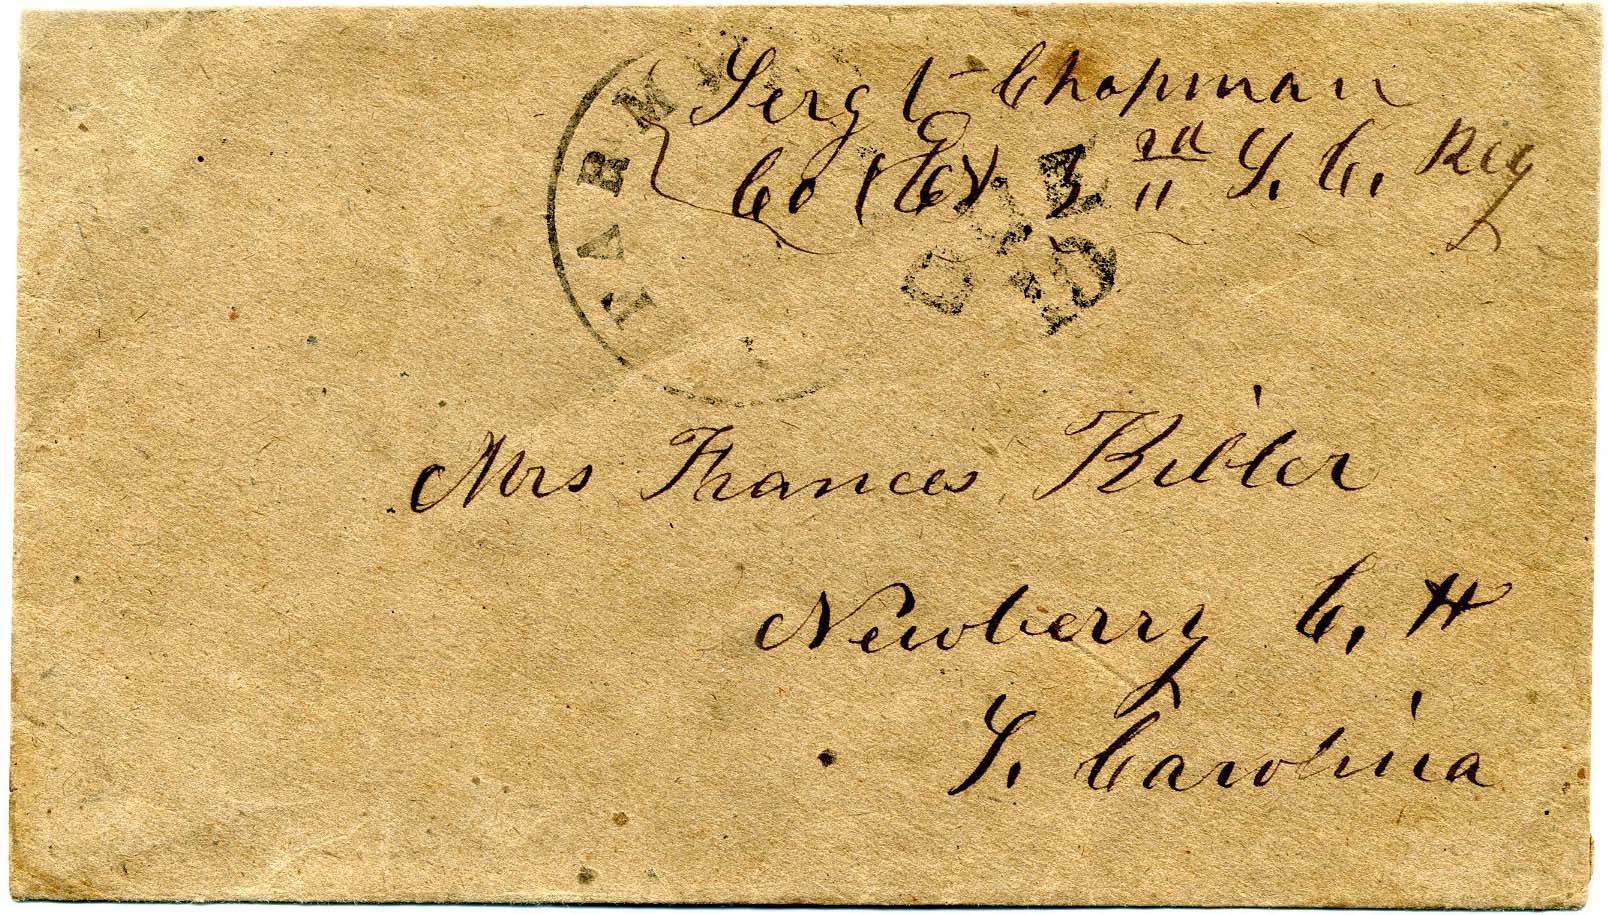 Sergt Chapman
Co (C) 3rd S. C. Reg
FARM
DUE
10
Mrs Frances Kibler
Newberry C. H
S. Carolina